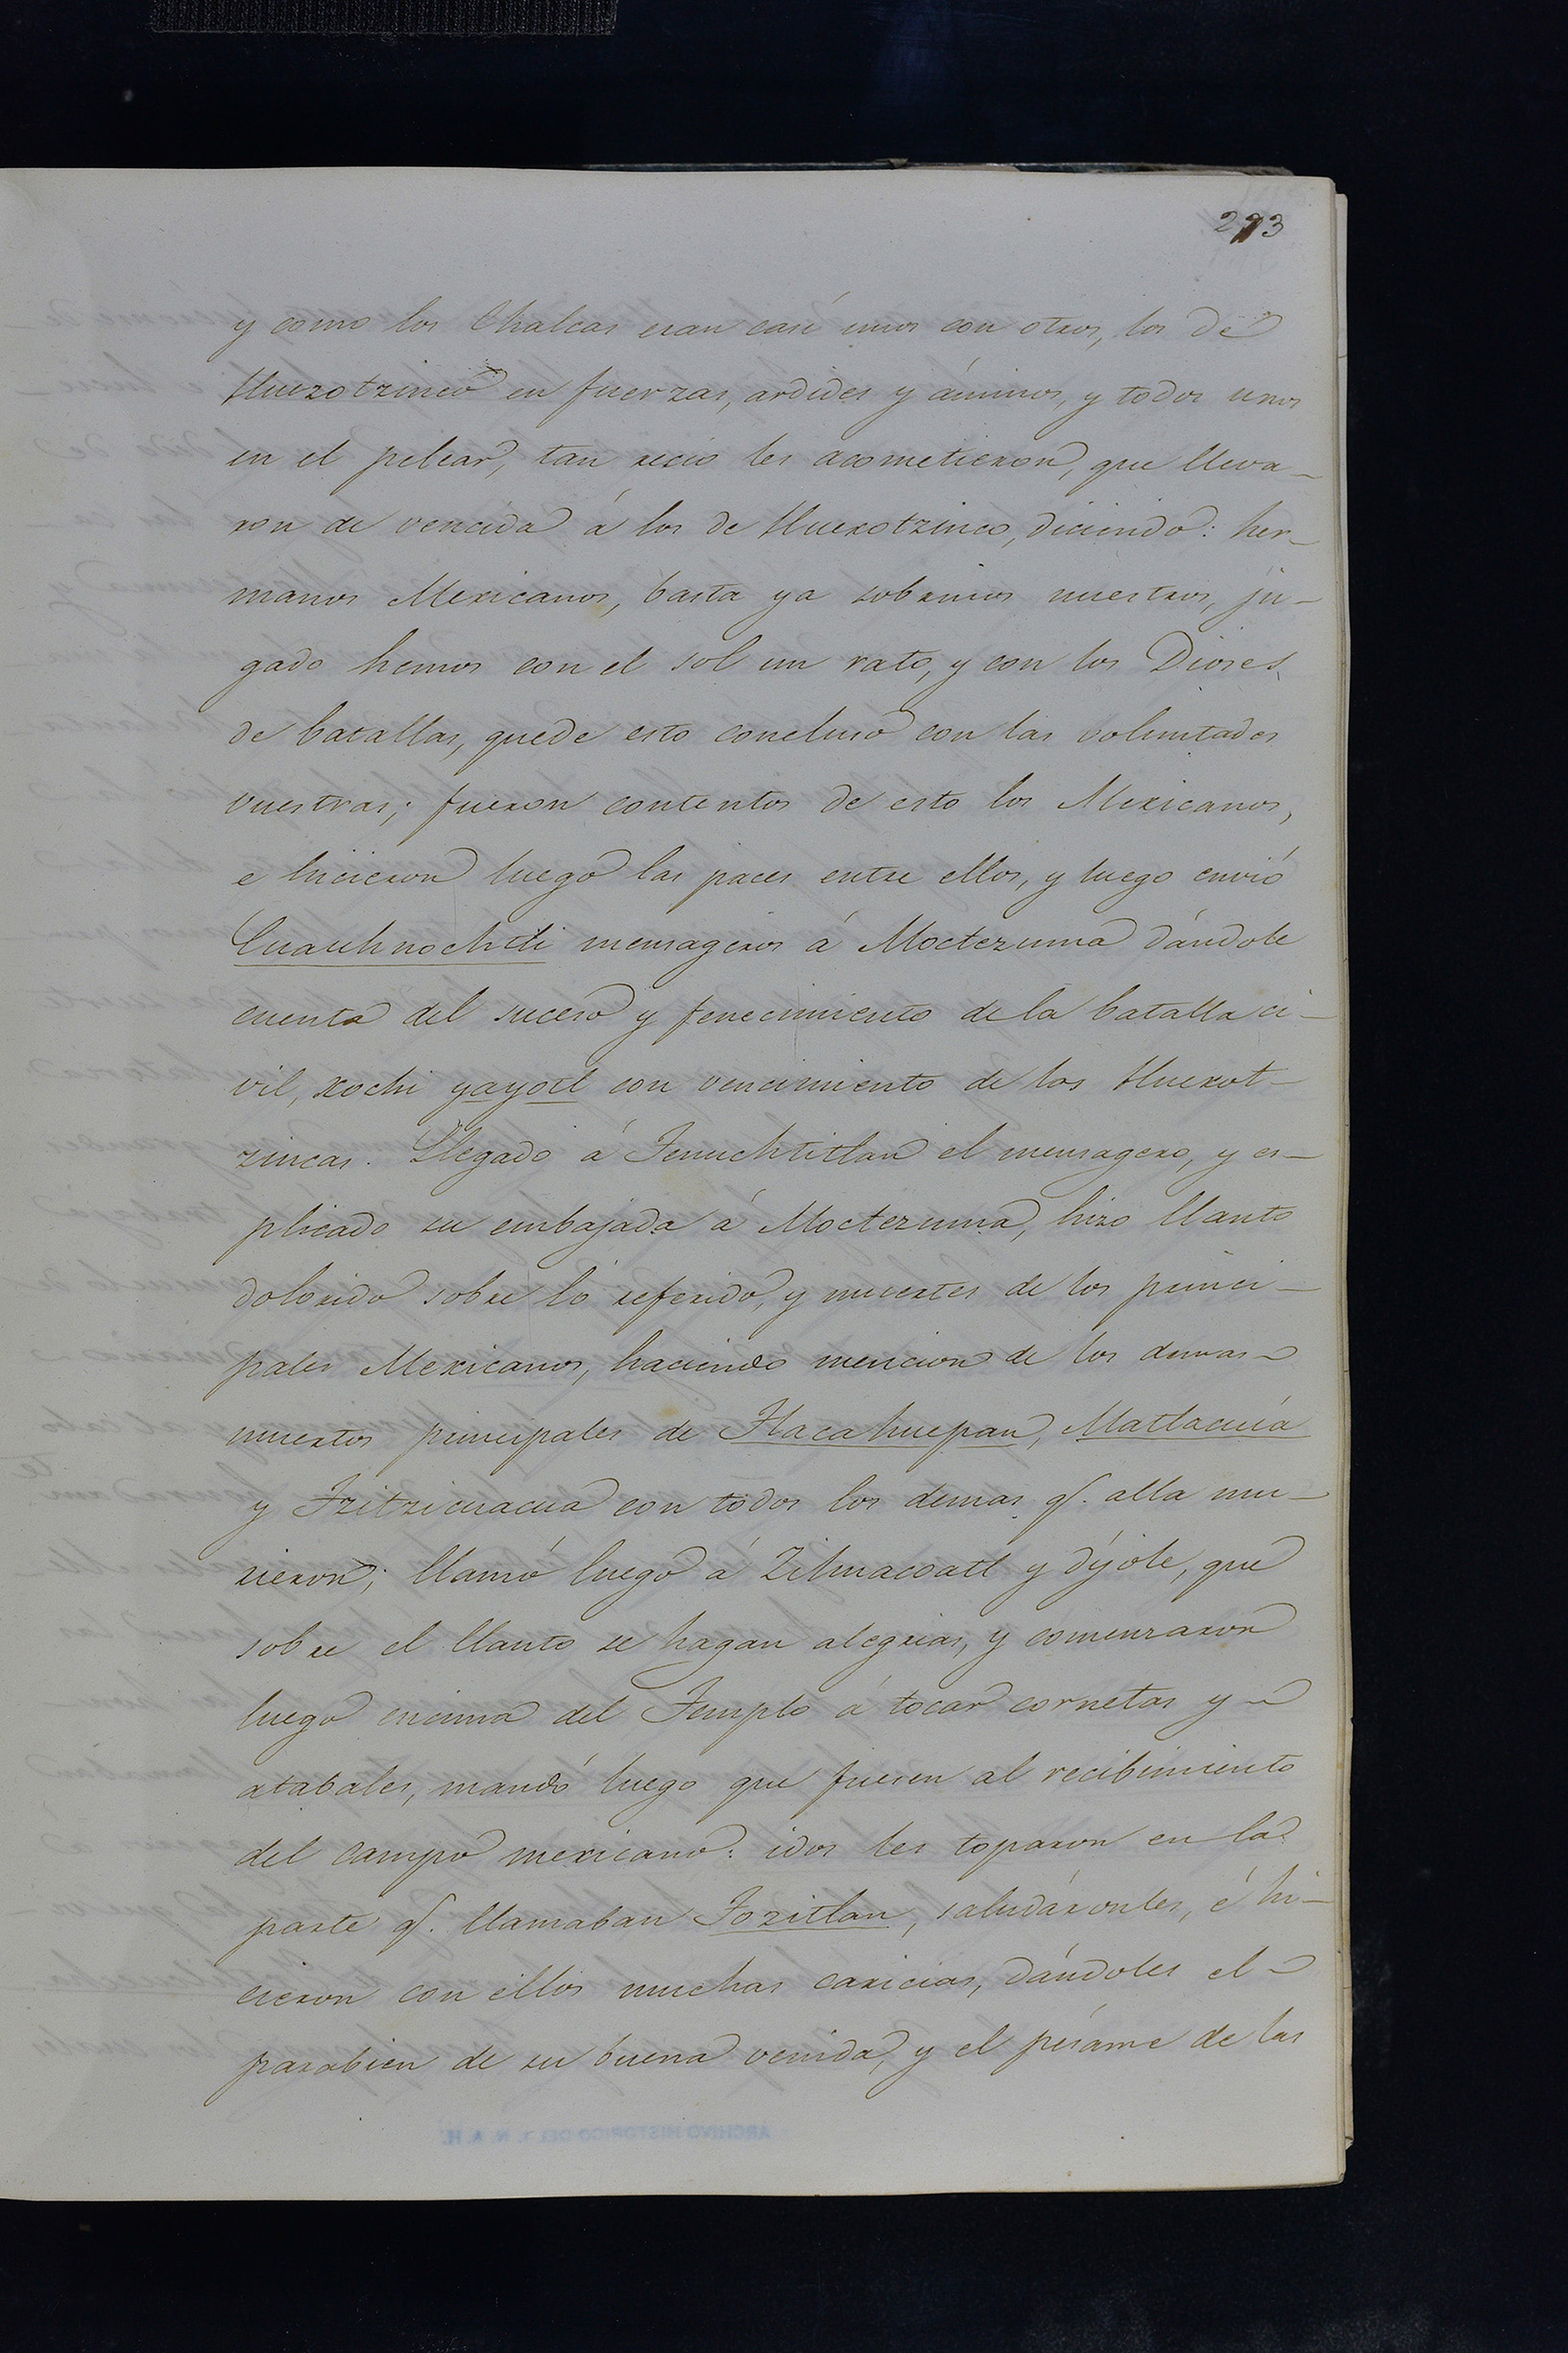 293
y como los Chalcas eran casi unos con otros, los de
Huexotzinco en fuerzas, ardides y ánimos, y todos unos
en el pelear, tan recio les acometieron, que lleva-
ron de vencida á los de Huexotzinco, diciendo: her-
manos Mexicanos, basta ya sobrinos nuestros, ju-
gado hemos con el sol un rato, y con los Dioses
de batallas, quede esto concluso con las voluntades
vuestras; fueron contentos de esto los Mexicanos,
e hicieron luego las paces entre ellos, y luego envió
Cuauhnochtli mensageros á Moctezuma dándole
cuenta del suceso y fenecimiento de la batalla ci-
vil, xochi yayotl con vencimiento de los Huexot-
zincas. Llegado á Tenuchtitlan el mensagero, y es-
plicado su embajada á Moctezuma, hizo llanto
dolorido sobre lo referido, y muertes de los princi-
pales Mexicanos, haciendo mencion de los demas
muertos principales de Tlacahuepan, Matlacuia
y Tzitzicuacua con todos los demas q. alla mu-
rieron; llamó luego á Zihuacoatl y díjole, que
sobre el llanto se hagan alegrias, y comenzaron
luego encima del Templo á tocar cornetas y
atabales, mandó luego que fuesen al recibimiento
del campo mexicano: idos les toparon en la
parte q. llamaban Tozitlan, saludáronles, é hi-
cieron con ellos muchas caricias, dándoles el
parabien de su buena venida, y el pésame de las
ARCHIVO HISTORICO DEL I. N. A. H.